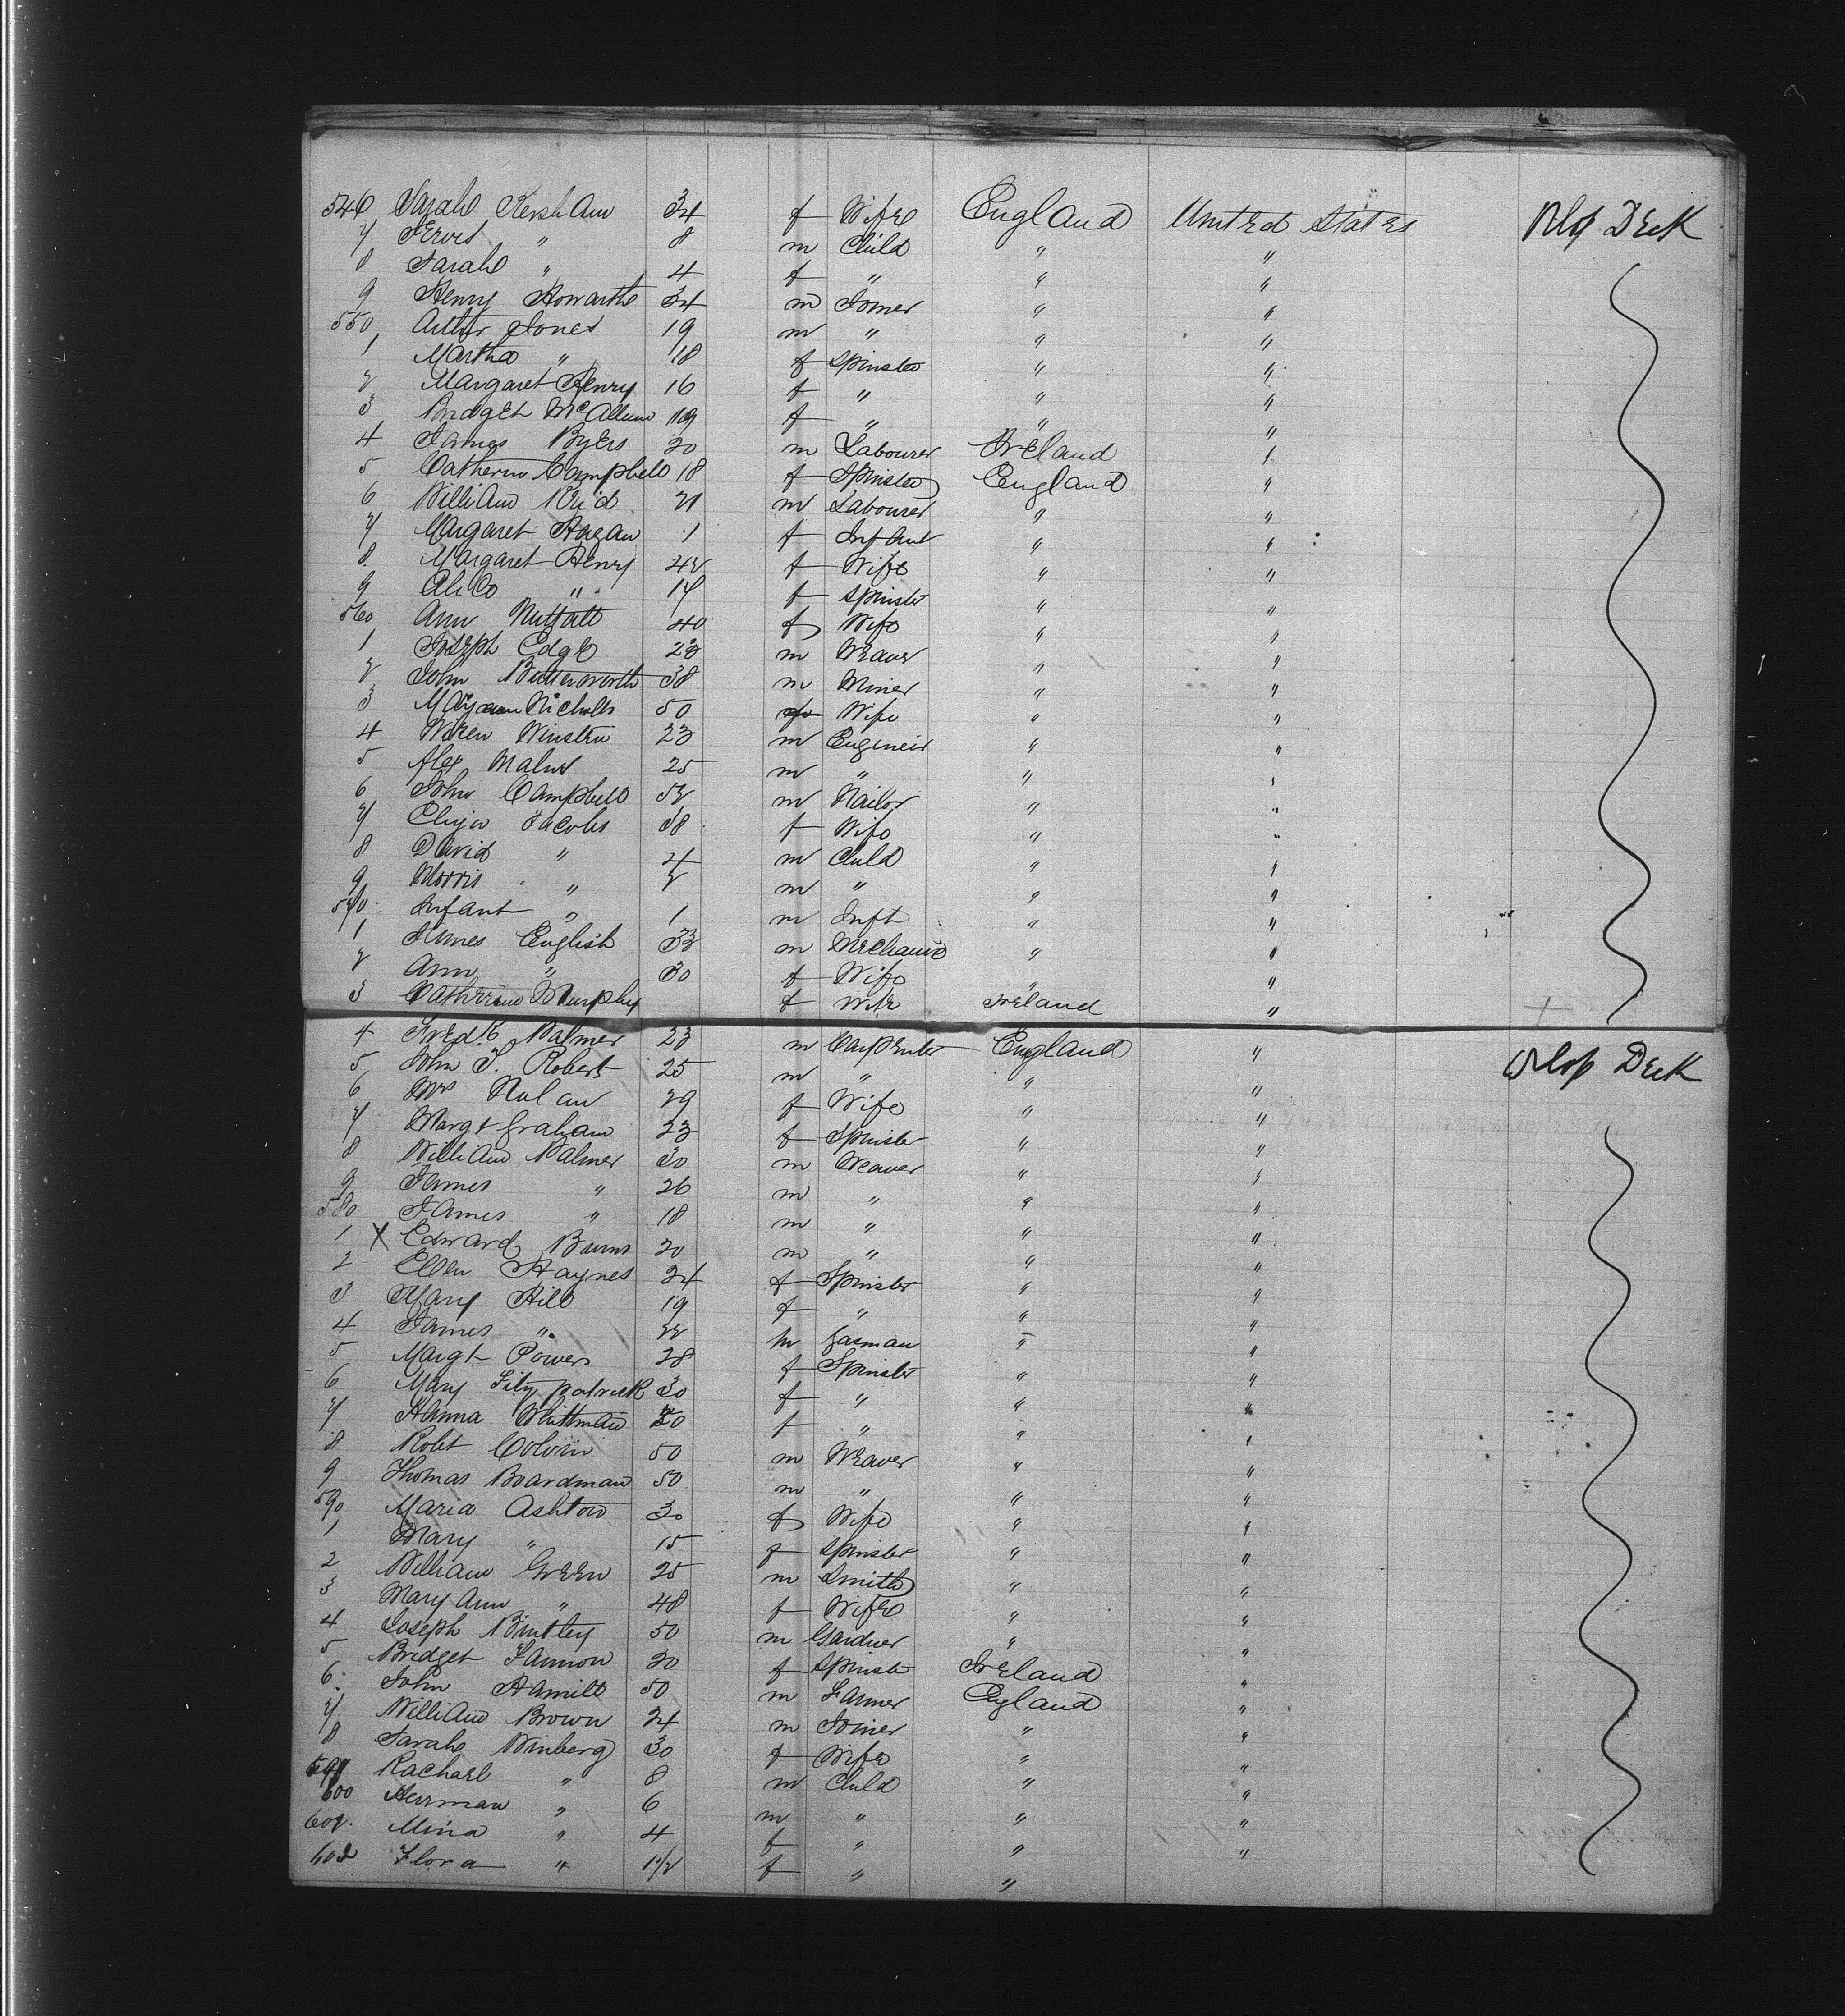 546 Sarah Kershaw 34 f Wife England United States Orlop Deck
7 " 8 m Child " "
8 Sarah " 4 f " " "
9 Henry Howarth 34 m Joiner " "
550 Arthur Jones 19 m " " "
1 Martha " 18 f Spinster " "
2 Margaret Henry 16 f " " "
3 Bridget McAllum 19 f " " "
4 James Byers 20 m Labourer Ireland "
5 Catherine Campbell 18 f Spinster England "
6 William Reid 21 m Labourer " "
7 Margaret Hagan 1 f Infant " "
8 Margaret Henry 42 f Wife " "
9 Alice " 14 f Spinster " "
560 Ann Nuttall 40 f Wife " "
1 Joseph Edge 23 m Weaver " "
2 John Butterworth 38 m Miner " "
3 Maryann Nicholls 50 f Wife " "
4 Winsten 23 m Engineir " "
5 Alex 25 m " " "
6 John Campbell 52 m Nailor " "
7 Eliza Jacobs 38 f Wife " "
8 David " 4 m Child " "
9 Morris " 2 m " " "
570 Infant " 1 m Inft " "
1 James English 33 m Mechanic " "
2 Ann " 30 f Wife " "
3 Catherine Murphy f Wife Ireland "
4 Fredk Palmer 23 m Carpenter England " Orlop Deck
5 John T. Robert 25 m " " "
6 Mrs Nolan 29 f Wife " "
7 Margt Graham 23 f Spinster " "
8 William Palmer 30 m Weaver " "
9 James " 26 m " " "
580 James " 18 m " " "
1 X Edward Burns 20 m " " "
2 Ellen Haynes 24 f Spinster " "
3 Mary Hill 19 f " " "
4 James " 22 m Gasman " "
5 Margt Powers 28 f Spinster " "
6 Mary Fitzpatrick 30 f " " "
7 Hanna Whittman 30 f " " "
8 Robt Colvin 50 m Weaver " "
9 Thomas Boardman 50 m " " "
590 Maria Ashton 30 f Wife " "
1 Mary " 15 f Spinster " "
2 William Green 25 m Smith " "
3 Mary Ann " 48 f Wife " "
4 Joseph Bintley 50 m Gardner " "
5 Bridget Fannon 20 f Spinster Ireland "
6 John Hamill 50 m Farmer England "
7 William Brown 24 m Joiner " "
8 Sarah Winberg 30 f Wife " "
599 Rachael " 8 m Child " "
600 Herrman " 6 m " " "
601 Mina " 4 f " " "
602 Flora " 1 1/2 f " "